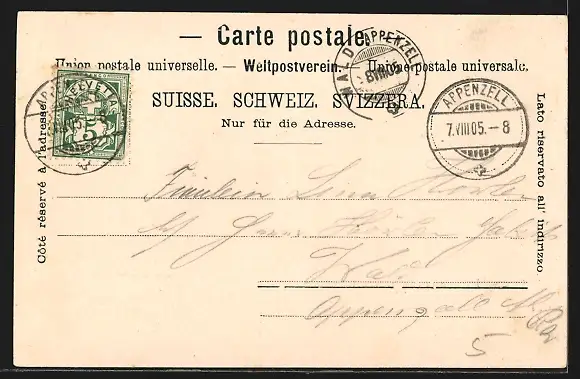 — Carte postale. —
Union postale universelle. — Weltpostverein. — Unione postale universale.
SUISSE. SCHWEIZ. SVIZZERA.
Nur für die Adresse.
Côté réservé à l'adresse.
Lato riservato all' indirizzo
HELVETIA
5
WALD (APPENZELL)
8.VIII.05.
APPENZELL
7.VIII.05.–8
Fräulein Lina
Wald
Appenzell
5